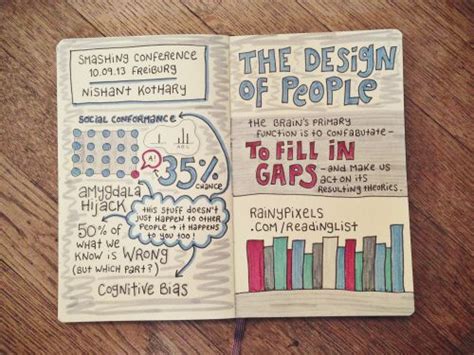 Smashing Conference
10.09.13 Freiburg
Nishant Kothary
Social Conformance
A!
35%
chance
Amygdala
Hijack
This stuff doesn't
just happen to other
people → it happens
to you too!
50% of
what we
know is Wrong
(but which part?)
Cognitive Bias
The Design
of People
The brain's primary
function is to confabutate-
To fill in
gaps -and make us
act on its
resulting theories.
Rainypixels
.com/readinglist